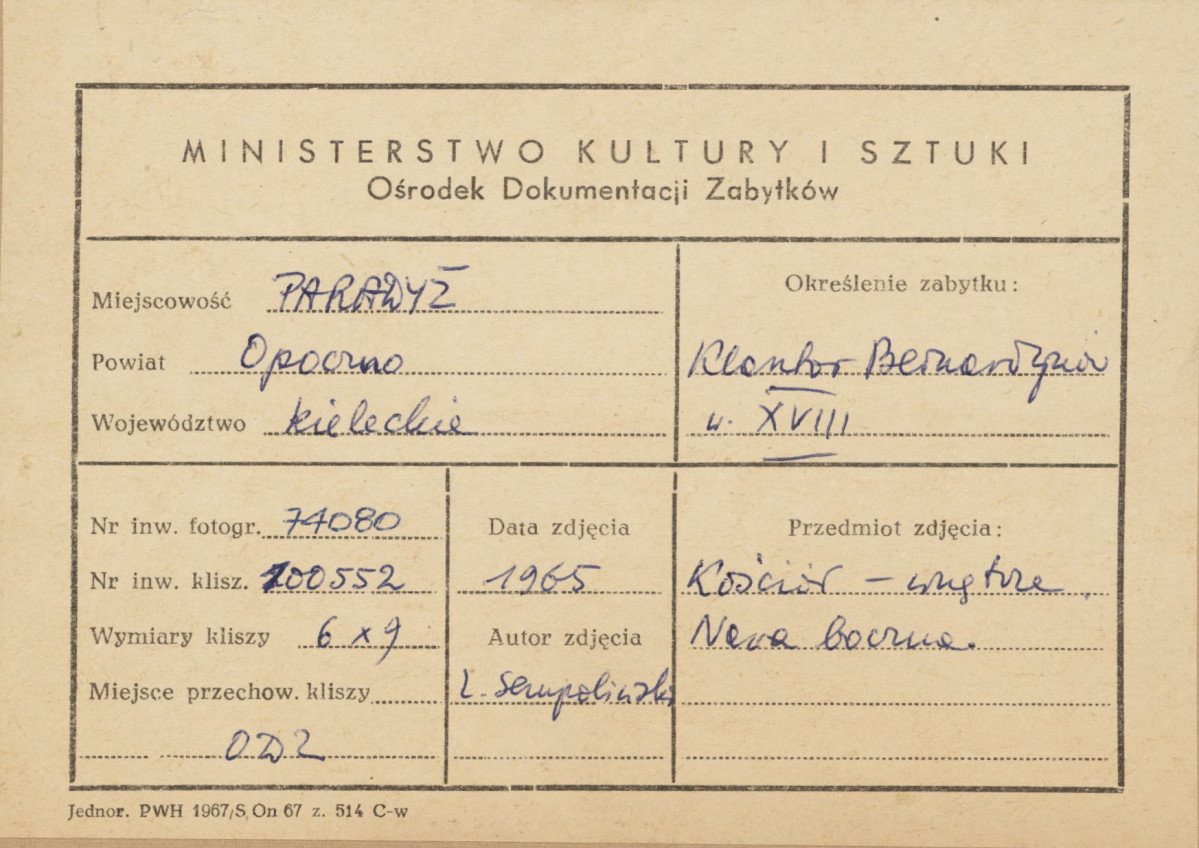 MINISTERSTWO KULTURY I SZTUKI
Ośrodek Dokumentacji Zabytków
Miejscowość PARADYŻ
Powiat Opoczno
Województwo kieleckie
Określenie zabytku:
Klasztor Bernardynów
w. XVIII
Nr inw. fotogr. 74080
Nr inw. klisz. 100552
Wymiary kliszy 6 x 9
Miejsce przechow. kliszy
ODZ
Data zdjęcia
1965
Autor zdjęcia
Ł. Sempoliński
Przedmiot zdjęcia:
Kościół – wnętrze.
Nawa boczna.
Jednor. PWH 1967/S On 67 z. 514 C-w